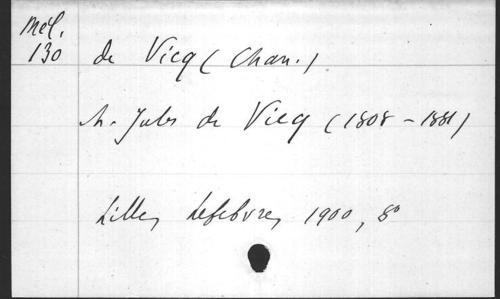 Mél.
130
de Vicq (Chan.)
M. Jules de Vicq (1808-1881)
Lille, Lefebvre, 1900, 8°